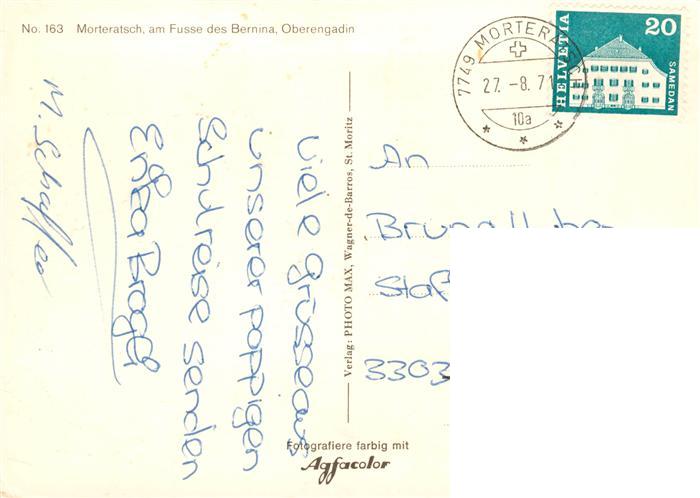 No. 163 Morteratsch, am Fusse des Bernina, Oberengadin
HELVETIA
20
SAMEDAN
7749 MORTERATSCH
27. -8. 71
10a
Viele Grüsse aus
unserer poppigen
Schulreise senden
M. Schaffer
Verlag: PHOTO MAX, Wagner-de-Barros, St. Moritz
An
3303
Fotografiere farbig mit
Agfacolor